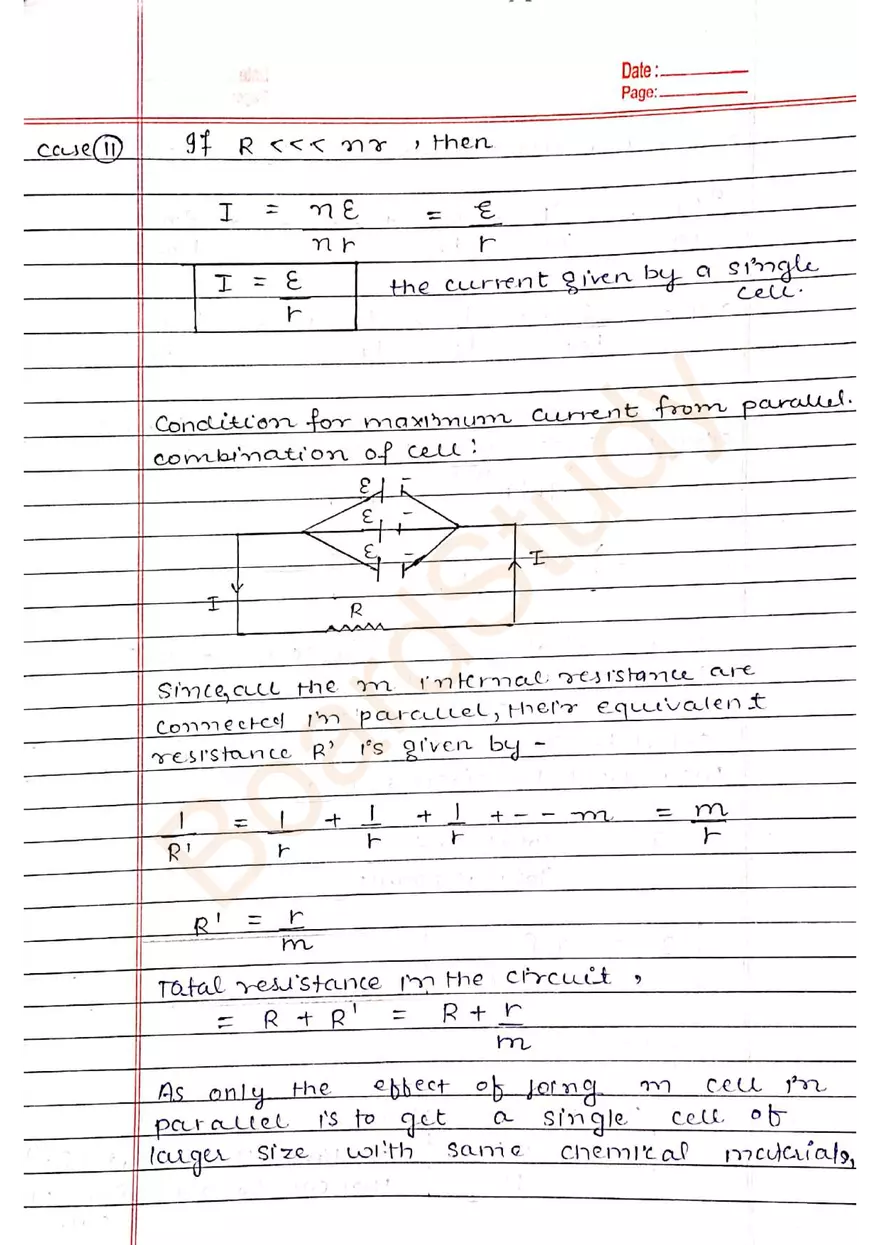 Date :
Page:
case (11) If R <<< nr , then
I = nε/nr = ε/r
I = ε/r the current given by a single
cell.
Condition for maximum current from parallel.
combination of cell :
ε -
ε -
ε -
I
I
R
Since, all the m internal resistance are
connected in parallel, their equivalent
resistance R' is given by -
1/R' = 1/r + 1/r + 1/r + - - m = m/r
R' = r/m
Total resistance in the circuit ,
= R + R' = R + r/m
As only the effect of joing m cell in
parallel is to get a single cell of
larger size with same chemical materials,
BoardStudy